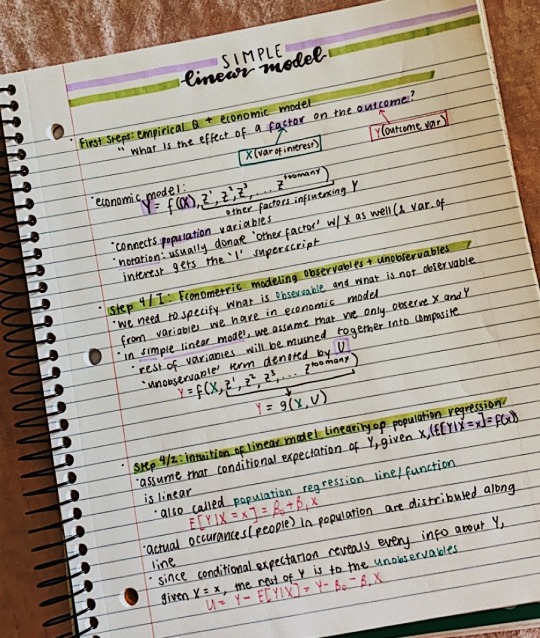 SIMPLE
linear model
First steps: empirical Q + economic model
" What is the effect of a factor on the outcome?
X (var of interest)
Y (outcome var)
economic model:
Y = f(X, Z¹, Z², Z³, ... Z^toomany)
other factors influencing Y
connects population variables
notation: usually donate 'other factor' w/ X as well (& var. of
interest gets the '1' superscript
Step 4/I: Econometric modeling observables + unobservables
we need to specify what is observable and what is not observable
from variables we have in economic model
in simple linear model, we assume that we only observe X and Y
rest of variables will be mushed together into composite
'unobservable' term denoted by U
Y = f(X, Z¹, Z², Z³, ... Z^toomany)
Y = g(X, U)
Step 4/2: intuition of linear model linearity of population regression
assume that conditional expectation of Y, given X, (E[Y|X=x] = f(x))
is linear
also called population regression line/function
E[Y|X=x] = β₀ + β₁x
actual occurances (people) in population are distributed along
line
since conditional expectation reveals every info about Y,
given X = x, the rest of Y is to the unobservables
U = Y - E[Y|X] = Y - β₀ - β₁X